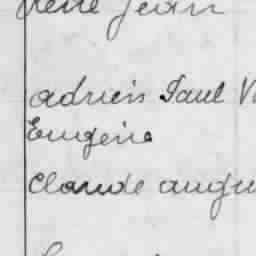 René Jean
adrien Paul V
Eugène
Claude augu